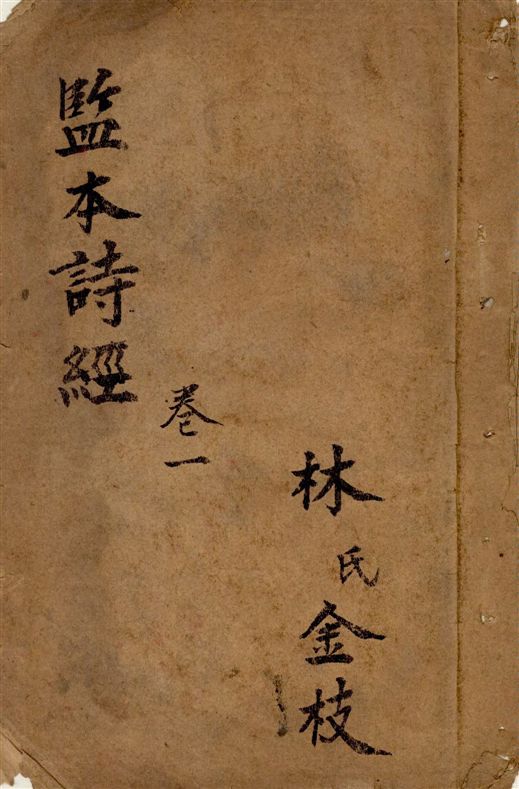 監本詩經
卷一
林氏金枝